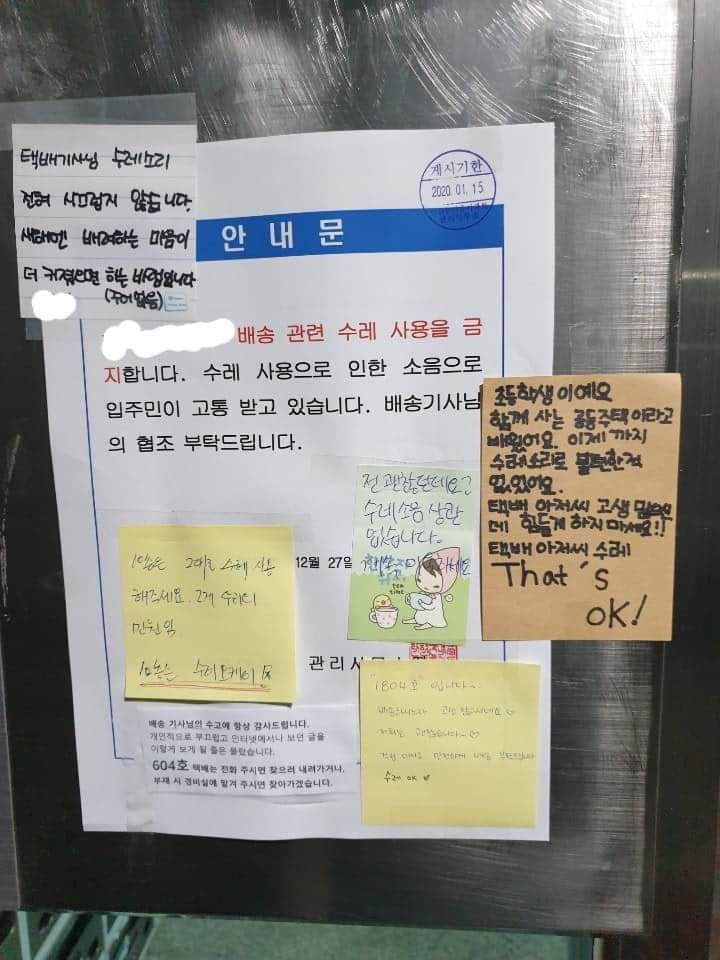 택배기사님 수레소리
전혀 시끄럽지 않습니다.
배려하는 마음이
더 커졌으면 하는 바램입니다
(주어없음)
게시기한
2020. 01. 15
안 내 문
배송 관련 수레 사용을 금
지합니다. 수레 사용으로 인한 소음으로
입주민이 고통 받고 있습니다. 배송기사님
의 협조 부탁드립니다.
12월 27일
관리사무소
초등학생이에요
함께 사는 공동주택이라고
배웠어요. 이제까지
수레소리로 불편한적
없었어요.
택배 아저씨 고생 많은
데 힘들게 하지 마세요!!
택배 아저씨 수레
That's
OK!
전 괜찮던데요?
수레소음 상관
없습니다~
tea
time
수레 사용
해주세요.
수레오케이
배송 기사님의 수고에 항상 감사드립니다.
개인적으로 부끄럽고 인터넷에서나 보던 글을
이렇게 보게 될 줄은 몰랐습니다.
604호 택배는 전화 주시면 찾으러 내려가거나,
부재 시 경비실에 맡겨 주시면 찾아가겠습니다.
1804호 입니다~
저희는 괜찮습니다~ ♡
수레 OK ♥